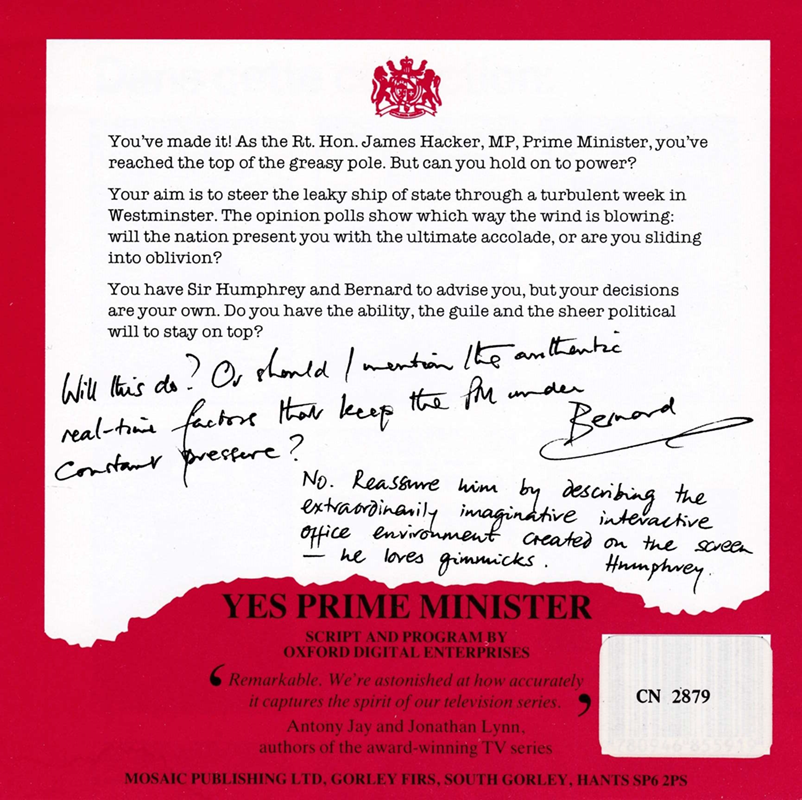 You've made it! As the Rt. Hon. James Hacker, MP, Prime Minister, you've
reached the top of the greasy pole. But can you hold on to power?
Your aim is to steer the leaky ship of state through a turbulent week in
Westminster. The opinion polls show which way the wind is blowing:
will the nation present you with the ultimate accolade, or are you sliding
into oblivion?
You have Sir Humphrey and Bernard to advise you, but your decisions
are your own. Do you have the ability, the guile and the sheer political
will to stay on top?
Will this do? Or should I mention the authentic
real-time factors that keep the PM under
constant pressure?
Bernard
No. Reassure him by describing the
extraordinarily imaginative interactive
office environment created on the screen
— he loves gimmicks. Humphrey.
YES PRIME MINISTER
SCRIPT AND PROGRAM BY
OXFORD DIGITAL ENTERPRISES
‘Remarkable. We're astonished at how accurately
it captures the spirit of our television series.’
Antony Jay and Jonathan Lynn,
authors of the award-winning TV series
CN 2879
MOSAIC PUBLISHING LTD, GORLEY FIRS, SOUTH GORLEY, HANTS SP6 2PS